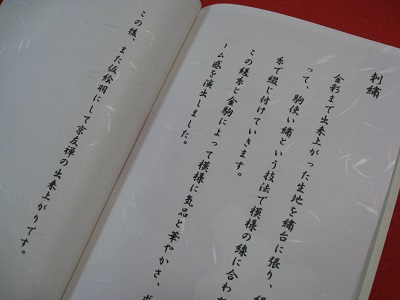 刺繍
金彩まで出来上がった生地を繍台に張り、
って、駒使い繍という技法で模様の縁に合わ
糸で綴じ付けていきます。
この縫糸と金駒によって模様に気品と華やかさ、
ーム感を演出しました。
この後、また仮絵羽にして京友禅の出来上がりです。